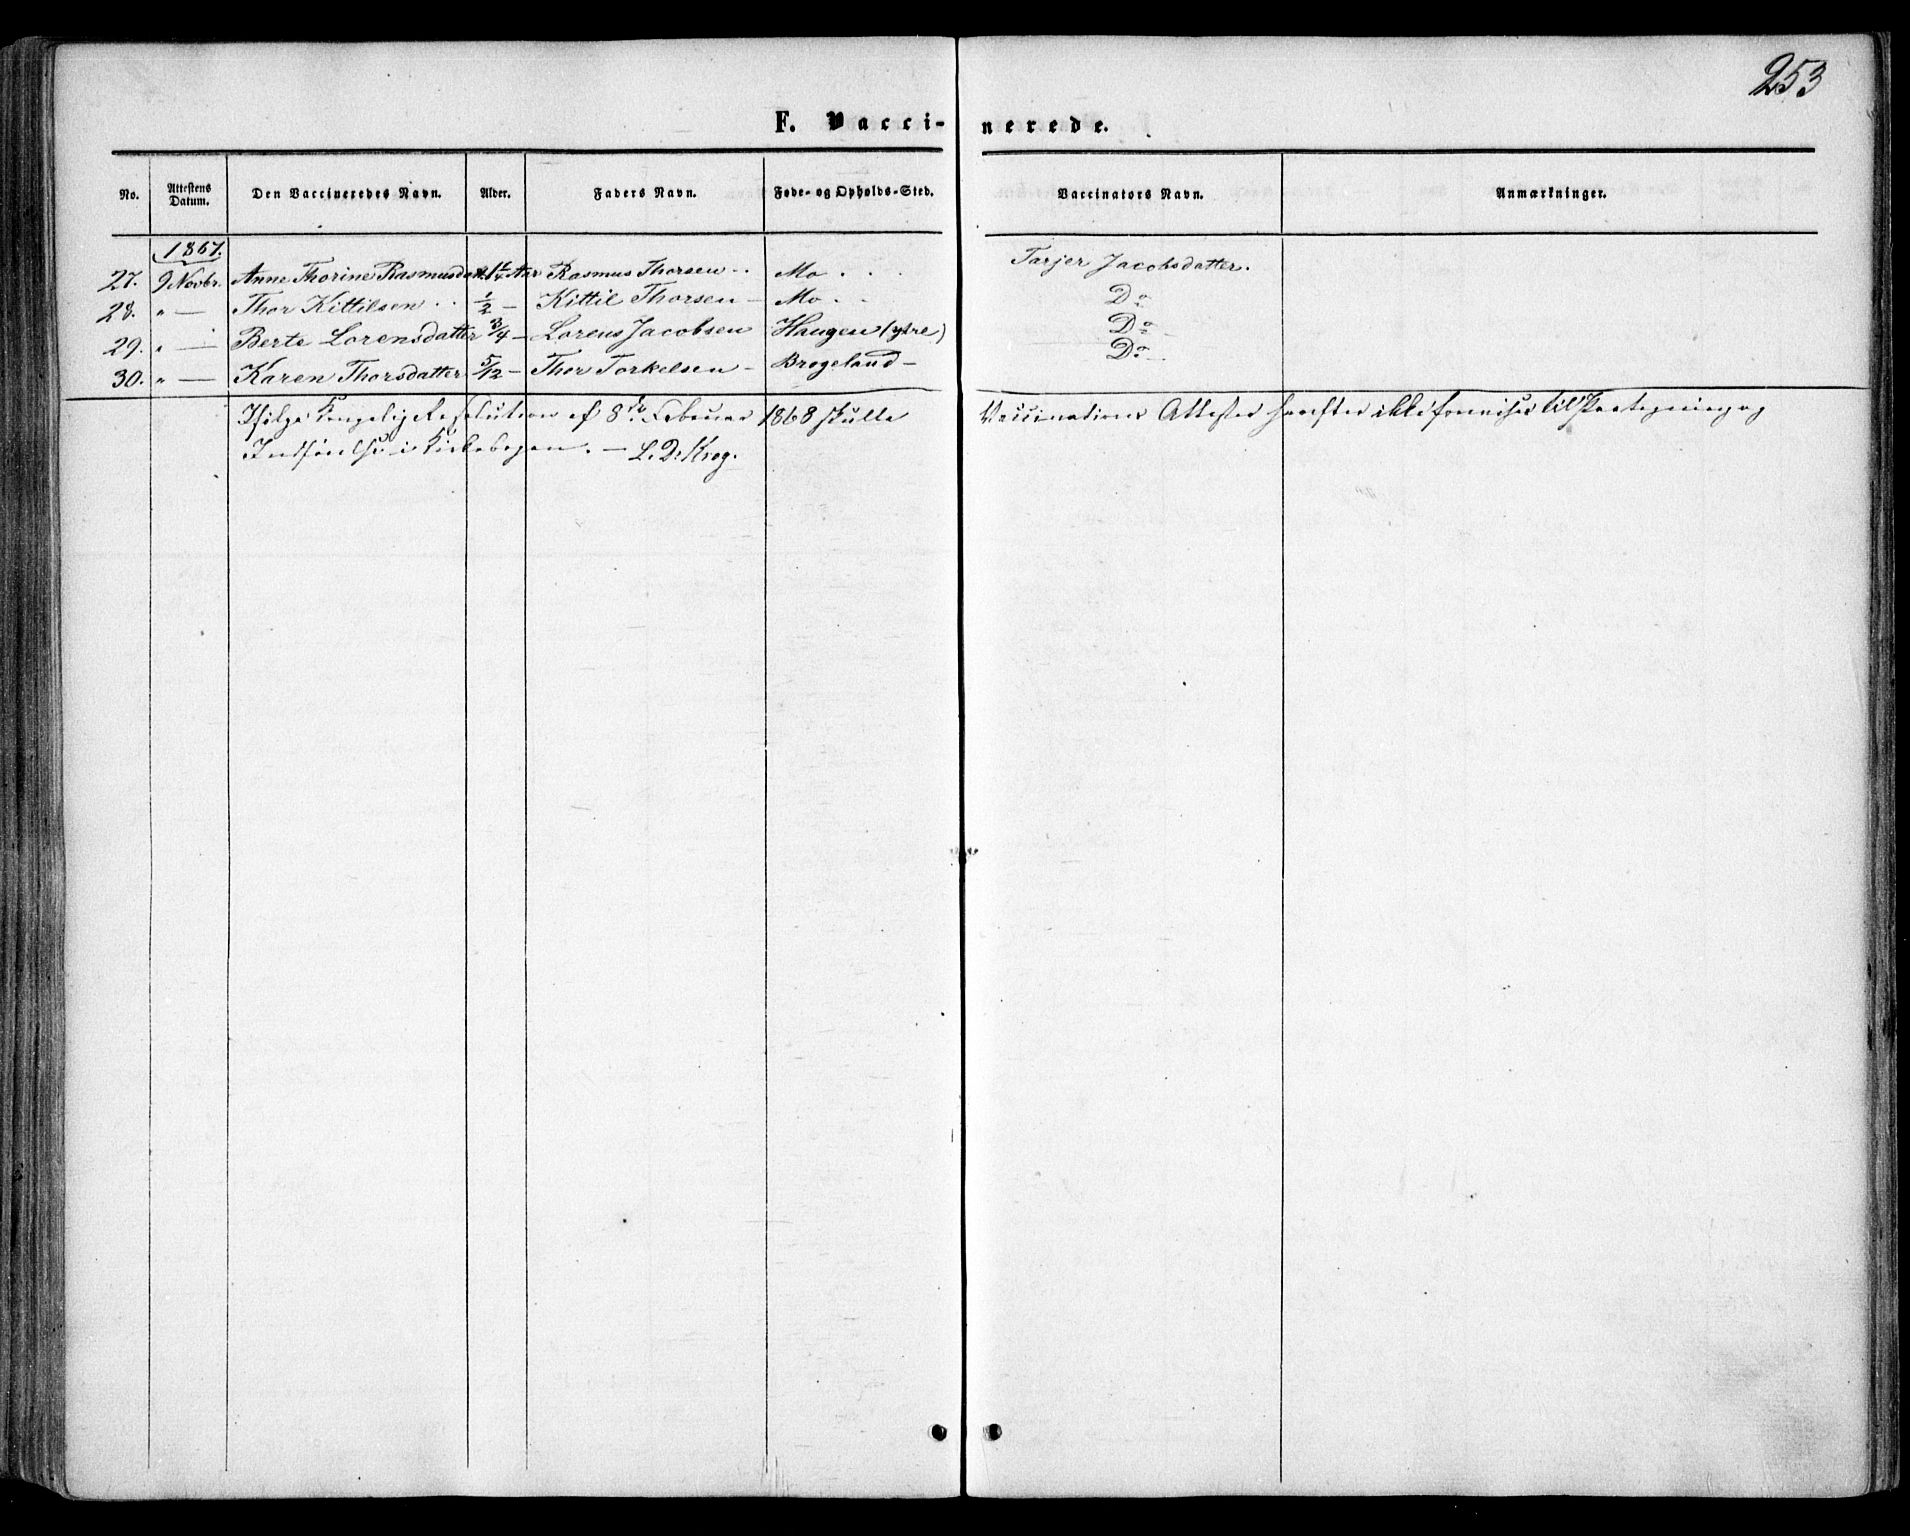 253
F. Vaccinerede.
No. Attestens Datum. Den Vaccineredes Navn. Alder. Faders Navn. Føde- og Opholds-Sted. Vaccinators Navn. Anmærkninger.
1867.
27. 9 Novbr. Anne Thorine Rasmusdatt. 1 1/4 Aar Rasmus Thorsen Mo Tarjer Jacobsdatter.
28. " — Thor Kittilsen 1/2 — Kittil Thorsen — Mo Do
29. " — Berte Lorensdatter 3/4 — Lorens Jacobsen Haugen (ytre) Do
30. " — Karen Thorsdatter 5/12 — Thor Torkelsen — Brogeland — Do
Ifølge Kongelig Resolution af 8de Februar 1868 skulle Vaccinations Attester herefter ikke forevises til Paategning og
Indførelse i Kirkebogen. — L. D. Krog.